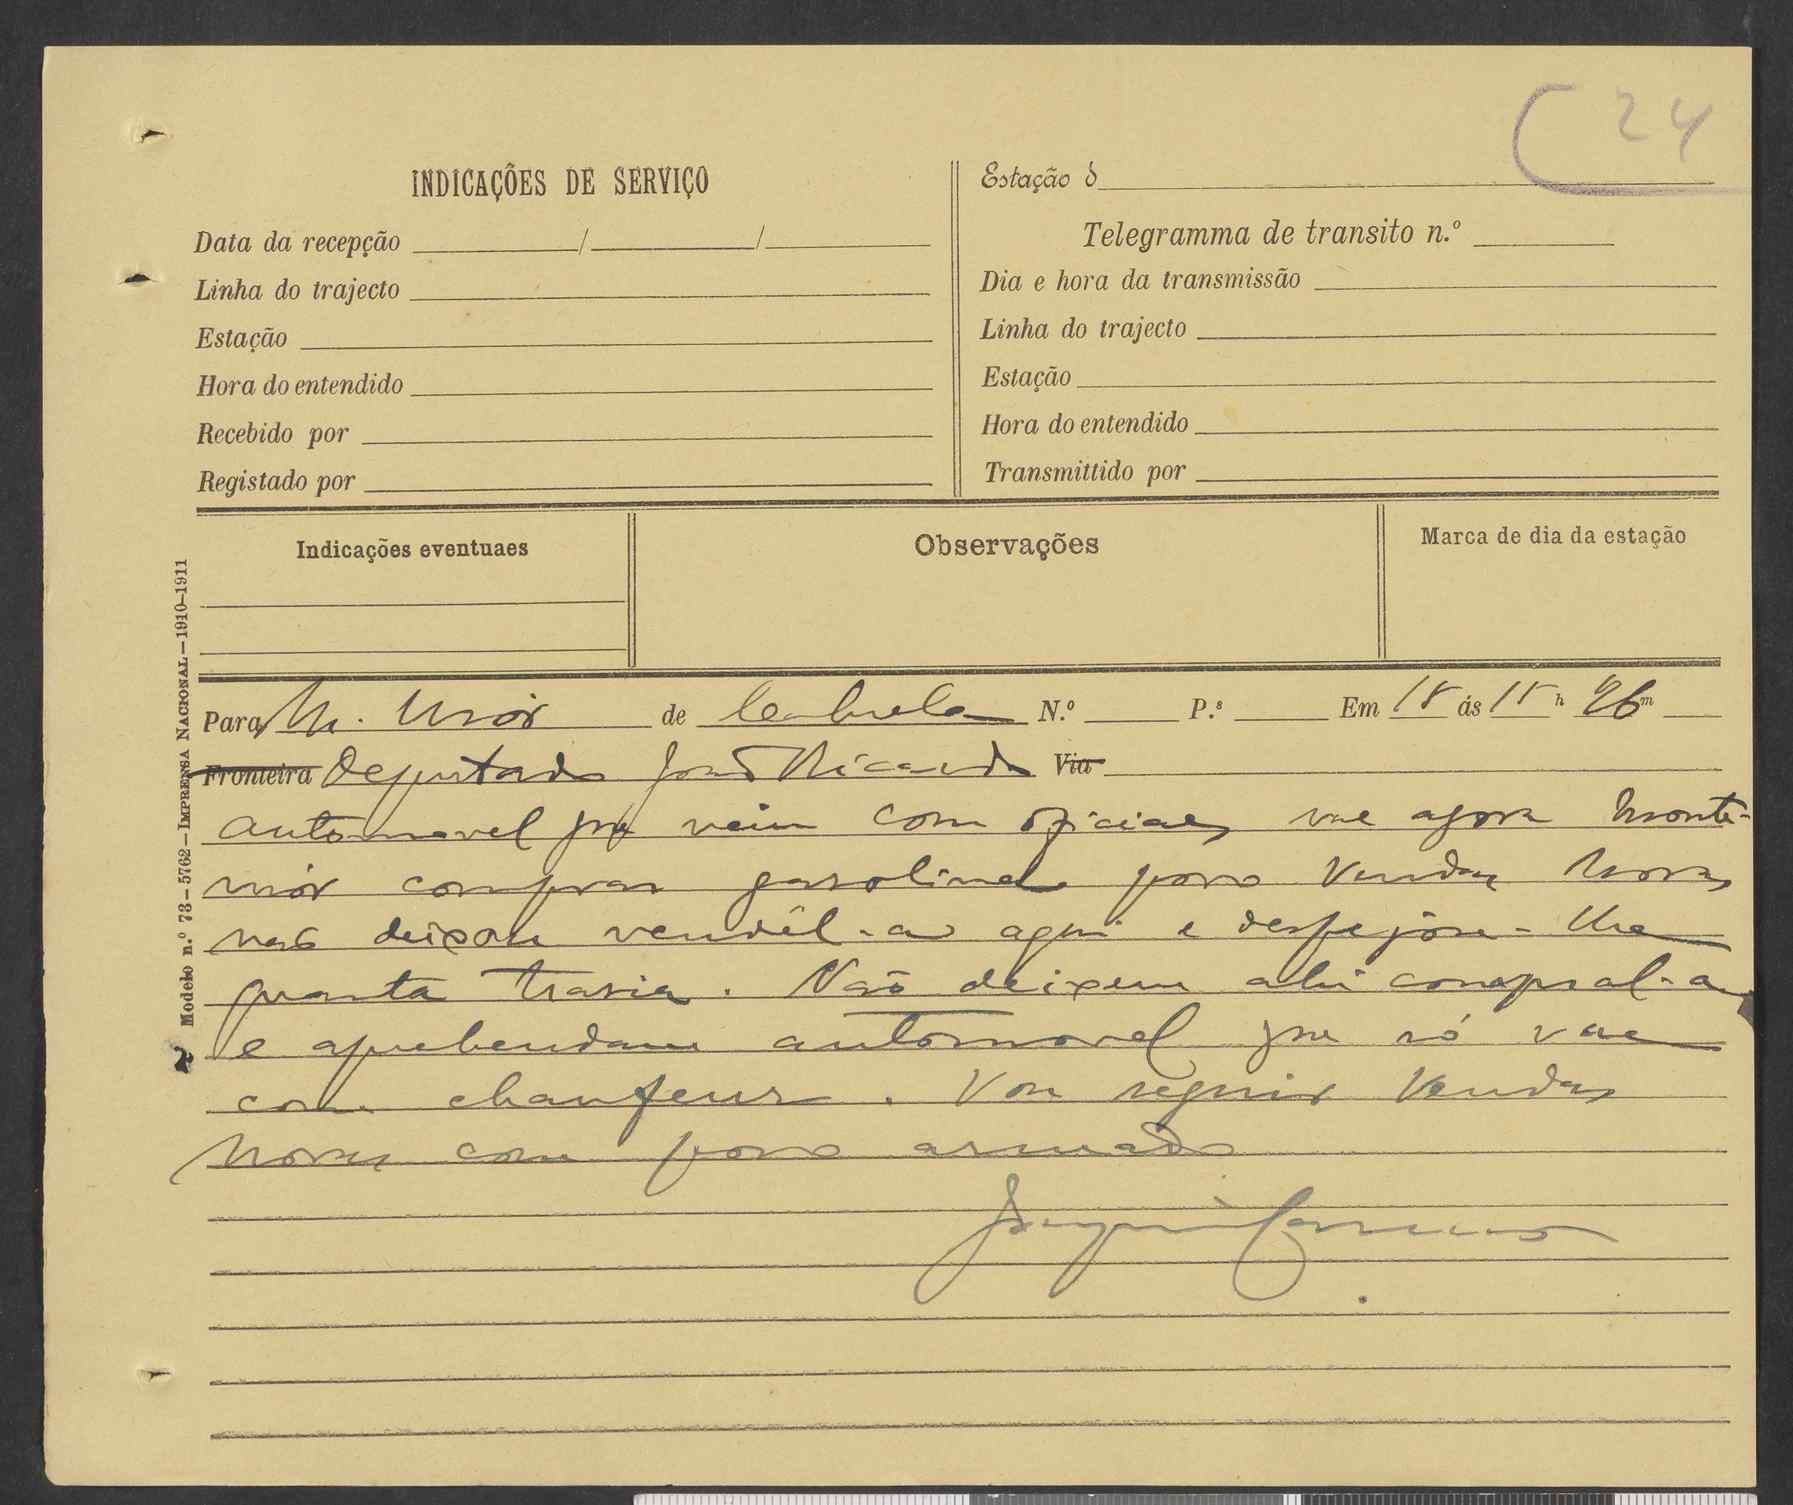 24
INDICAÇÕES DE SERVIÇO
Data da recepção / /
Linha do trajecto
Estação
Hora do entendido
Recebido por
Registado por
Estação d
Telegramma de transito n.º
Dia e hora da transmissão
Linha do trajecto
Estação
Hora do entendido
Transmittido por
Indicações eventuaes
Observações
Marca de dia da estação
Modelo n.º 73—5762—IMPRENSA NACIONAL—1910-1911
Para M. Mór de N.º P.s Em 18 ás 15 h 26 m
Fronteira Deputado João Ricardo Via
automovel que veiu com oficiaes vae agora Monte-
mór comprar gasolina povo Vendas Novas
não deixou vendêl-a aqui e despejou-lhe
quanta trasia. Não deixem ahi compral-a
e aprehendam automovel que só vae
com chaufeur. Vou seguir Vendas
Novas com povo armado